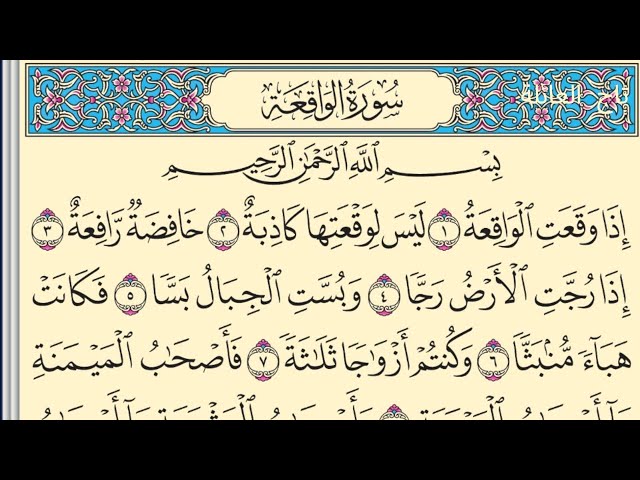 سُورَةُ الوَاقِعَةِ
تاج العائلة
بِسْمِ اللَّهِ الرَّحْمَٰنِ الرَّحِيمِ
إِذَا وَقَعَتِ الْوَاقِعَةُ ١ لَيْسَ لِوَقْعَتِهَا كَاذِبَةٌ ٢ خَافِضَةٌ رَّافِعَةٌ ٣
إِذَا رُجَّتِ الْأَرْضُ رَجًّا ٤ وَبُسَّتِ الْجِبَالُ بَسًّا ٥ فَكَانَتْ
هَبَاءً مُّنۢبَثًّا ٦ وَكُنتُمْ أَزْوَاجًا ثَلَاثَةً ٧ فَأَصْحَابُ الْمَيْمَنَةِ